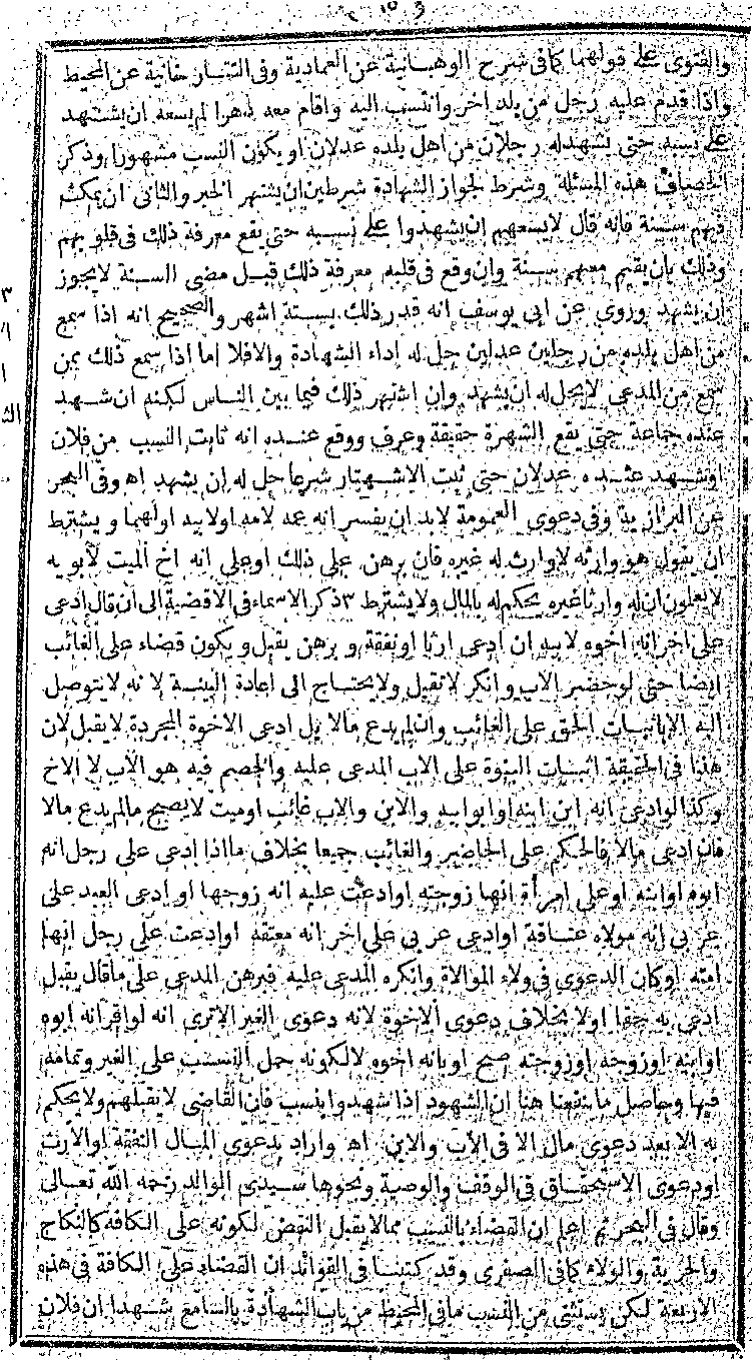 والفتوى على قولهما كما في شرح الوهبانية عن العمادية وفي التتار خانية عن المحيط
واذا قدم عليه رجل من بلد اخر وانتسب اليه واقام معه دهرا لم يسعه ان يشهد
على نسبه حتى يشهد له رجلان من اهل بلده عدلان او يكون النسب مشهورا وذكر
الخصاف هذه المسئلة وشرط لجواز الشهادة شرطين ان يشتهر الخبر والثاني ان يمكث
فيهم سنة فانه قال لا يسعهم ان يشهدوا على نسبه حتى يقع معرفة ذلك في قلوبهم
وذلك بان يقيم معهم سنة وان وقع في قلبه معرفة ذلك قبل مضى السنة لا يجوز
ان يشهد وروى عن ابى يوسف انه قدر ذلك بستة اشهر والصحيح انه اذا سمع
من اهل بلده من رجلين عدلين حل له اداء الشهادة والا فلا اما اذا سمع ذلك ممن
سمع من المدعى لا يحل له ان يشهد وان اشتهر ذلك فيما بين الناس لكنه ان شهد
عنده جماعة حتى يقع الشهرة حقيقة وعرف ووقع عنده انه ثابت النسب من فلان
او شهد عنده عدلان حتى ثبت الاشتهار شرعا حل له ان يشهد اه وفى البحر
عن البزازية وفى دعوى العمومة لابد ان يفسر انه عمه لامه او لابيه او لهما ويشترط
ان يقول هو وارثه لا وارث له غيره فان برهن على ذلك او على انه اخ الميت لابويه
لا يعلمون ان له وارثا غيره يحكم له بالمال ولا يشترط ٣ ذكر الاسماء فى الاقضية الى ان قال ادعى
على اخر انه اخوه لابيه ان ادعى ارثا او نفقة وبرهن يقبل ويكون قضاء على الغائب
ايضا حتى لو حضر الاب وانكر لا تقبل ولا يحتاج الى اعادة البينة لانه لا يتوصل
اليه الا باثبات الحق على الغائب وان لم يدع مالا بل ادعى الاخوة المجردة لا يقبل لان
هذا فى الحقيقة اثبات البنوة على الاب المدعى عليه والخصم فيه هو الاب لا الاخ
وكذا لو ادعى انه ابن ابنه او ابو ابيه والابن والاب غائب او ميت لا يصح مالم يدع مالا
فان ادعى مالا فالحكم على الحاضر والغائب جميعا بخلاف ما اذا ادعى على رجل انه
ابوه او ابنه او على امرأة انها زوجته او ادعت عليه انه زوجها او ادعى العبد على
عربى انه مولاه عتاقة او ادعى عربى على اخر انه معتقه او ادعت على رجل انها
امته او كان الدعوى فى ولاء الموالاة وانكره المدعى عليه فبرهن المدعى على ما قال يقبل
ادعى به حقا اولا بخلاف دعوى الاخوة لانه دعوى الغير الا ترى انه لو اقر انه ابوه
او ابنه او زوجه او زوجته صح او بانه اخوه لا لكونه حمل النسب على الغير وتمامه
فيها وحاصل ما ينفعنا هنا ان الشهود اذا شهدوا بنسب فان القاضى لا يقبلهم ولا يحكم
به الا بعد دعوى مال الا فى الاب والابن اه واراد بدعوى المال النفقة او الارث
او دعوى الاستحقاق فى الوقف والوصية ونحوها سيدى الوالد رحمه الله تعالى
وقال فى البحر ثم اعلم ان القضاء بالنسب مما لا يقبل النقض لكونه على الكافة كالنكاح
والحرية والولاء كما فى الصغرى وقد كتبنا فى الفوائد ان القضاء على الكافة فى هذه
الاربعة لكن يستثنى من النسب ما فى المحيط من باب الشهادة بالتسامع شهدا ان فلان
٣